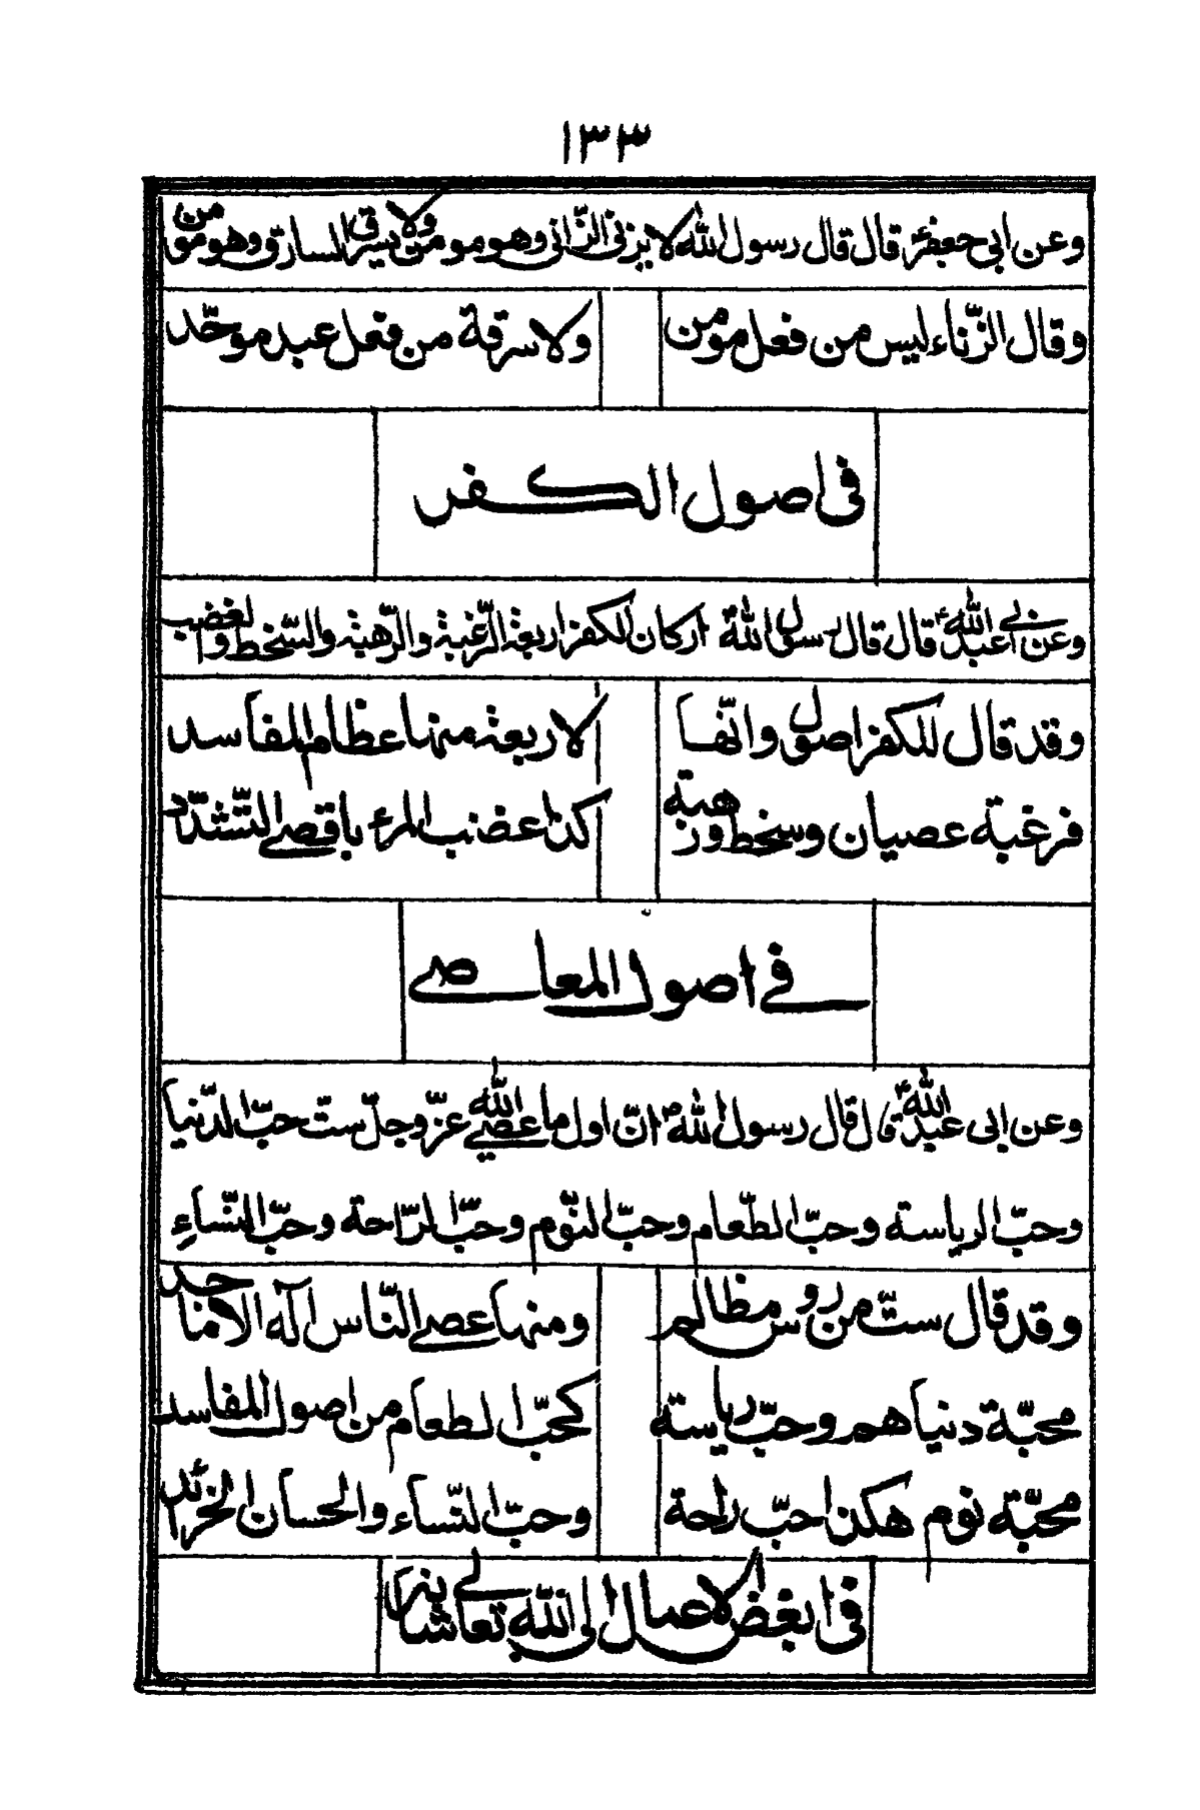 ١٣٣
وعن ابی جعفرؑ قال قال رسول الله لا یزنی الزّانی وهو مومن ولا یسرق السارق وهو مومن
وقال الزّناء لیس من فعل مومن ولا سرقة من فعل عبد موحّد
فی اصول الکفر
وعن ابی عبد اللهؑ قال قال رسول اللهؐ ارکان للکفر اربعة الرّغبة والرّهبة والسّخط والغضب
وقد قال للکفر اصول وانّها لاربعة منها عظام المفاسد
فرغبة عصیان وسخط ورهبة کذا غضب المرء باقصی التّشدّد
فی اصول المعاصی
وعن ابی عبد اللهؑ قال قال رسول اللهؐ انّ اول ما عصی الله عزّوجلّ ستّ حبّ الدّنیا
وحبّ الریاسة وحبّ الطّعام وحبّ النّوم وحبّ الرّاحة وحبّ النّساءِ
وقد قال ستّ من روس مظالم ومنها عصی النّاس آله الاماجد
محبّة دنیاهم وحبّ ریاسة کحبّ الطعام من اصول المفاسد
محبّة نوم هکذا حبّ راحة وحبّ النّساء والحسان الخرائد
فی ابغض الاعمال الی الله تعالی شانه